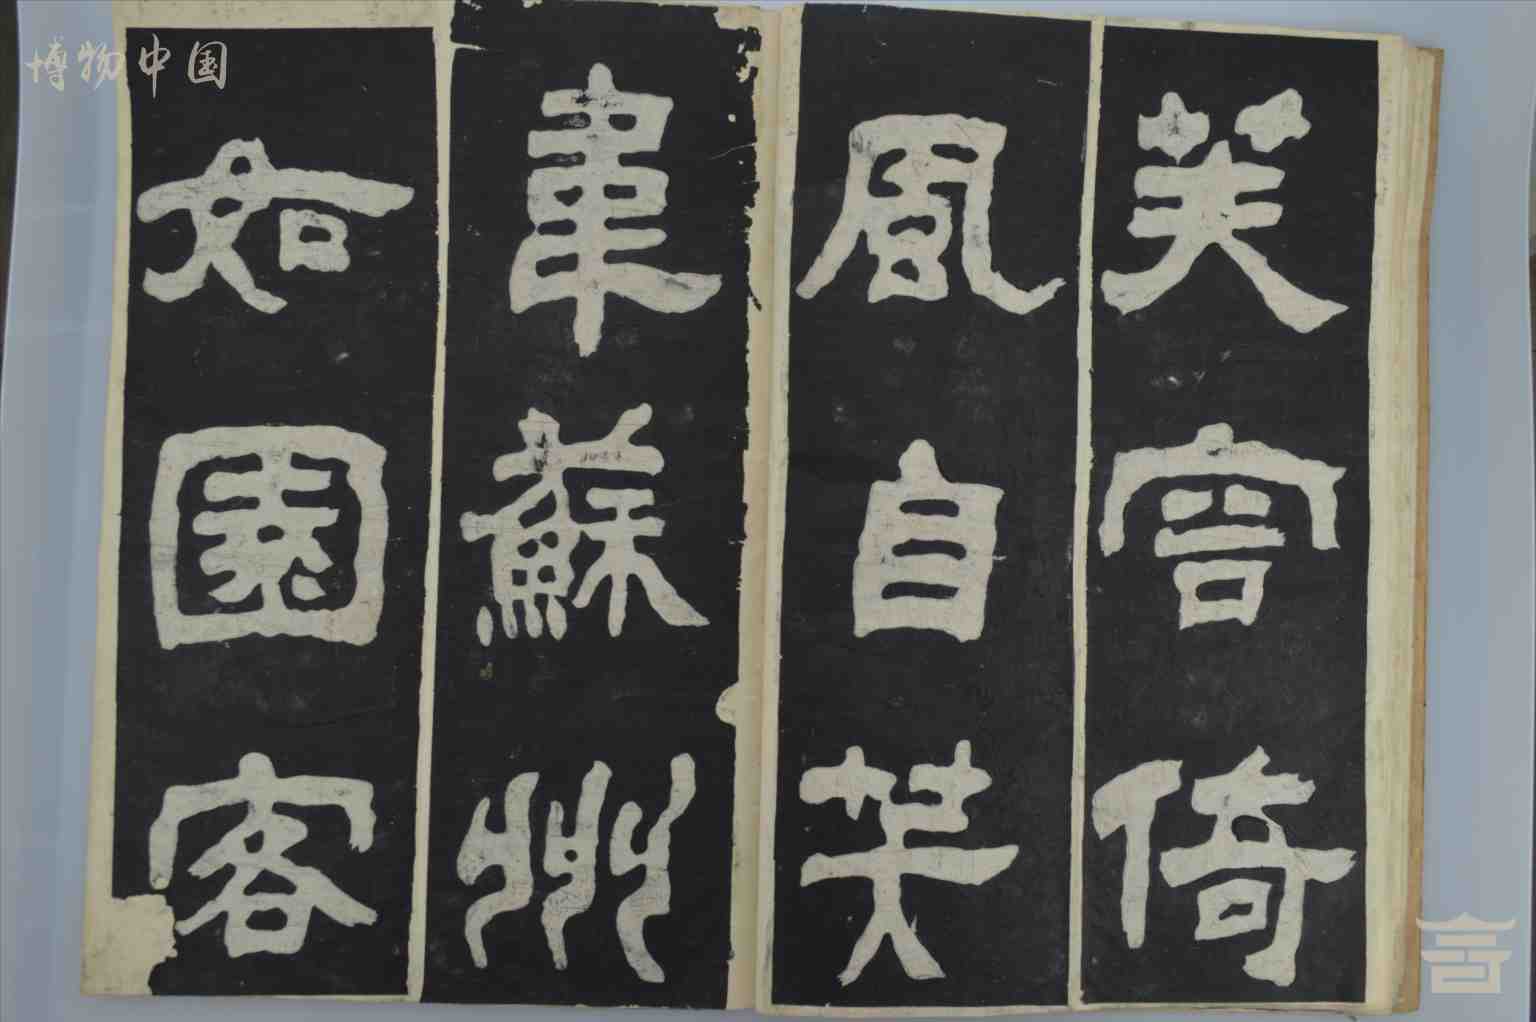 芙容倚
風自笑
韋蘇州
如園客
博物中国